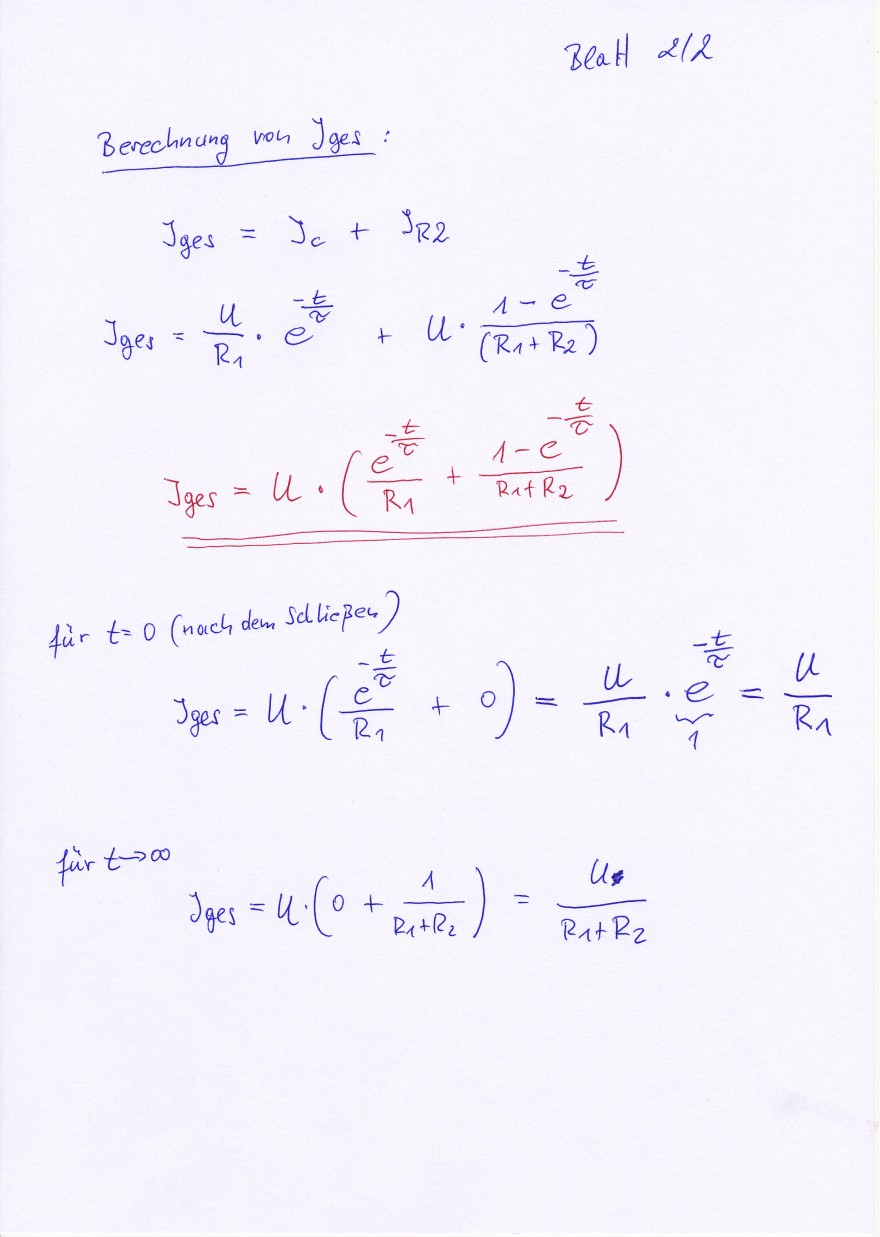 Blatt 2/2
Berechnung von Iges :
Iges = Ic + IR2
Iges = U/R1 · e^(-t/τ) + U · (1 - e^(-t/τ))/(R1 + R2)
Iges = U · (e^(-t/τ)/R1 + (1 - e^(-t/τ))/(R1 + R2))
für t = 0 (nach dem Schließen)
Iges = U · (e^(-t/τ)/R1 + 0) = U/R1 · e^(-t/τ) = U/R1
1
für t → ∞
Iges = U · (0 + 1/(R1 + R2)) = U/(R1 + R2)